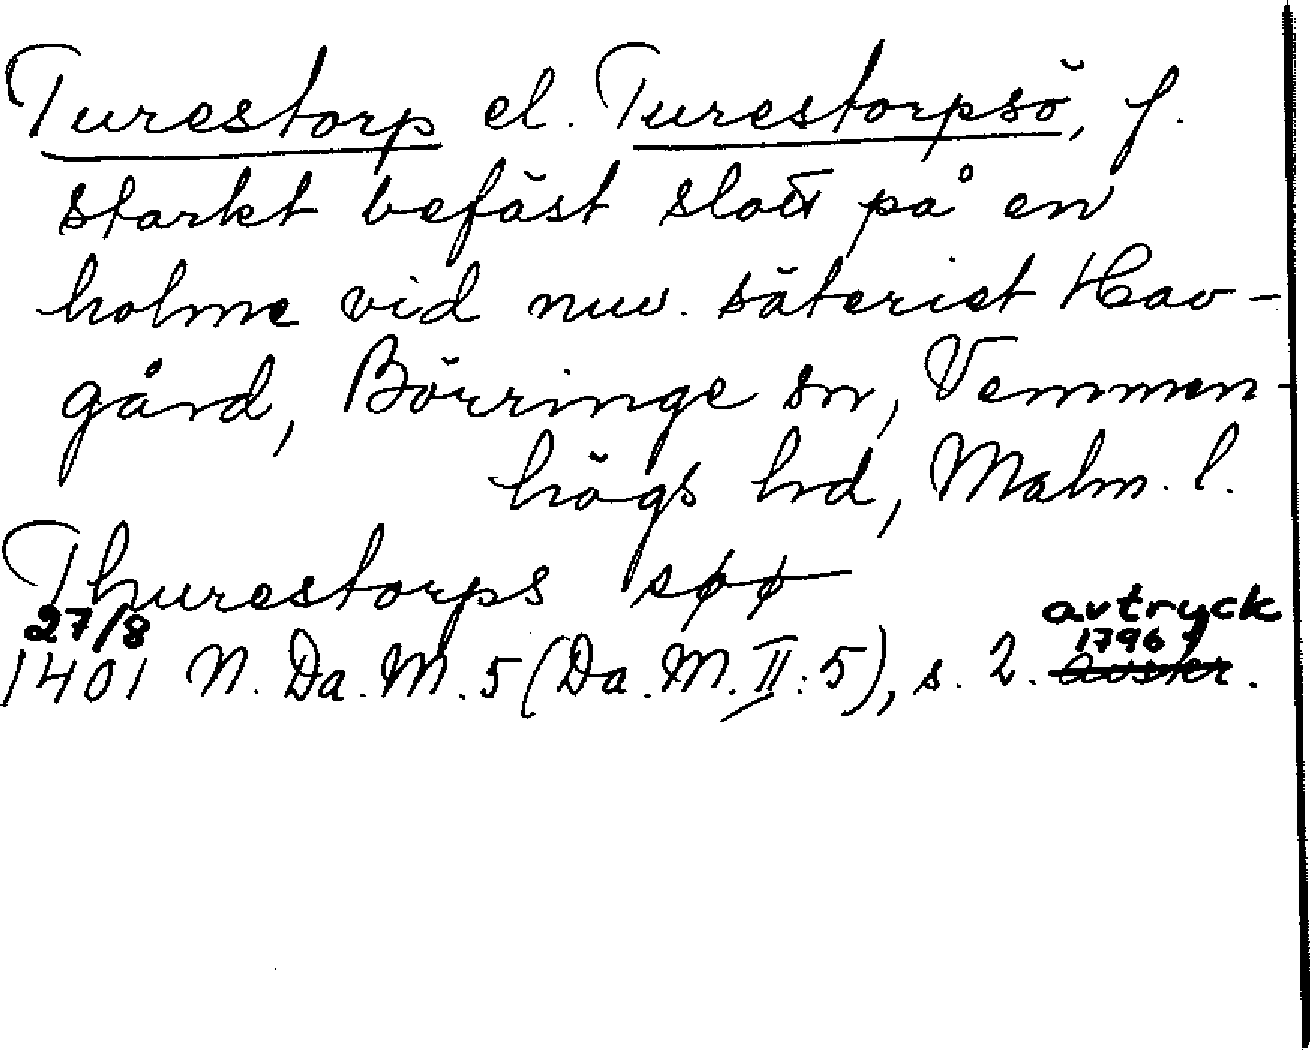 Turestorp el. Turestorpsö, f.
starkt befäst slott på en
holme vid nuv. säteriet Hav-
gård, Börringe sn, Vemmen-
högs hrd, Malm. l.
Thurestorps søø
27/8 avtryck
1401 N. Da. M. 5 (Da. M. II: 5), s. 2. 1796